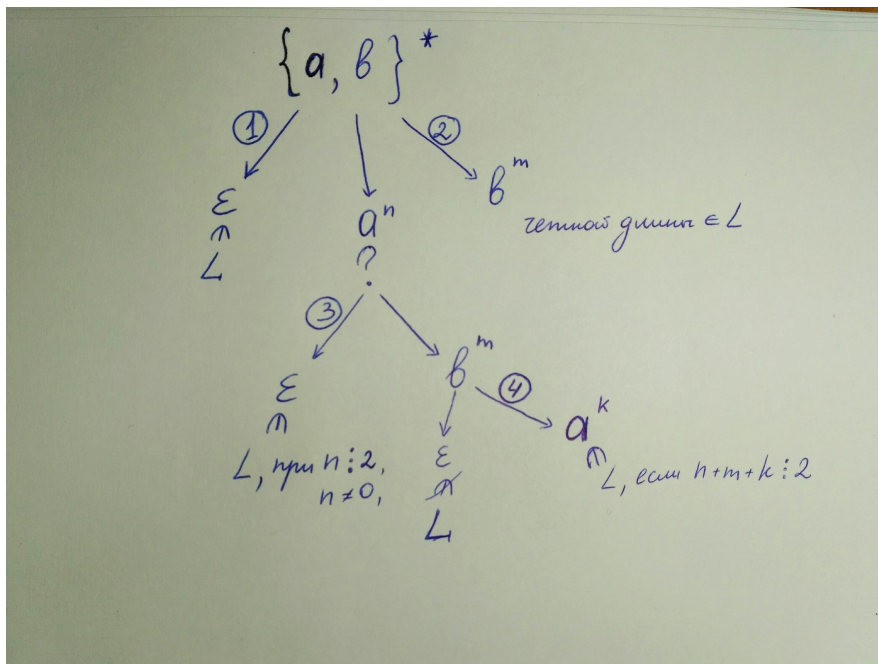 {a, b}*
① ②
ε
∈
L
aⁿ
?
bᵐ
четной длины ∈ L
③
ε
∈
L, при n⋮2,
n≠0,
bᵐ
ε
∉
L
④
aᵏ
∈
L, если n+m+k⋮2